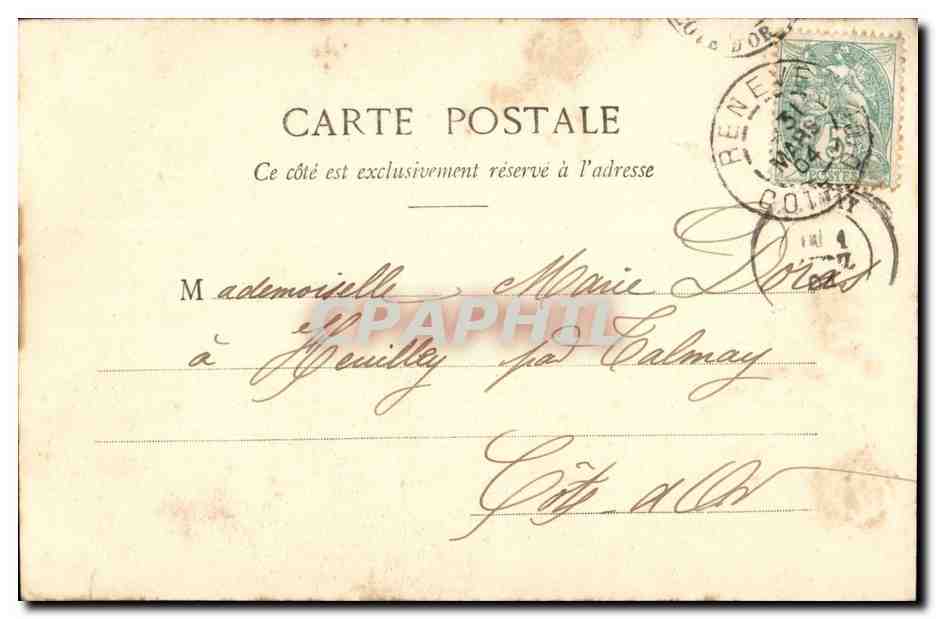 CÔTE D'OR
RENEVE
31
MARS
04
5
POSTES
1
CARTE POSTALE
Ce côté est exclusivement réservé à l'adresse
Mademoiselle Marie Doras
CPAPHIL
à Heuilley par Talmay
Côte d'Or